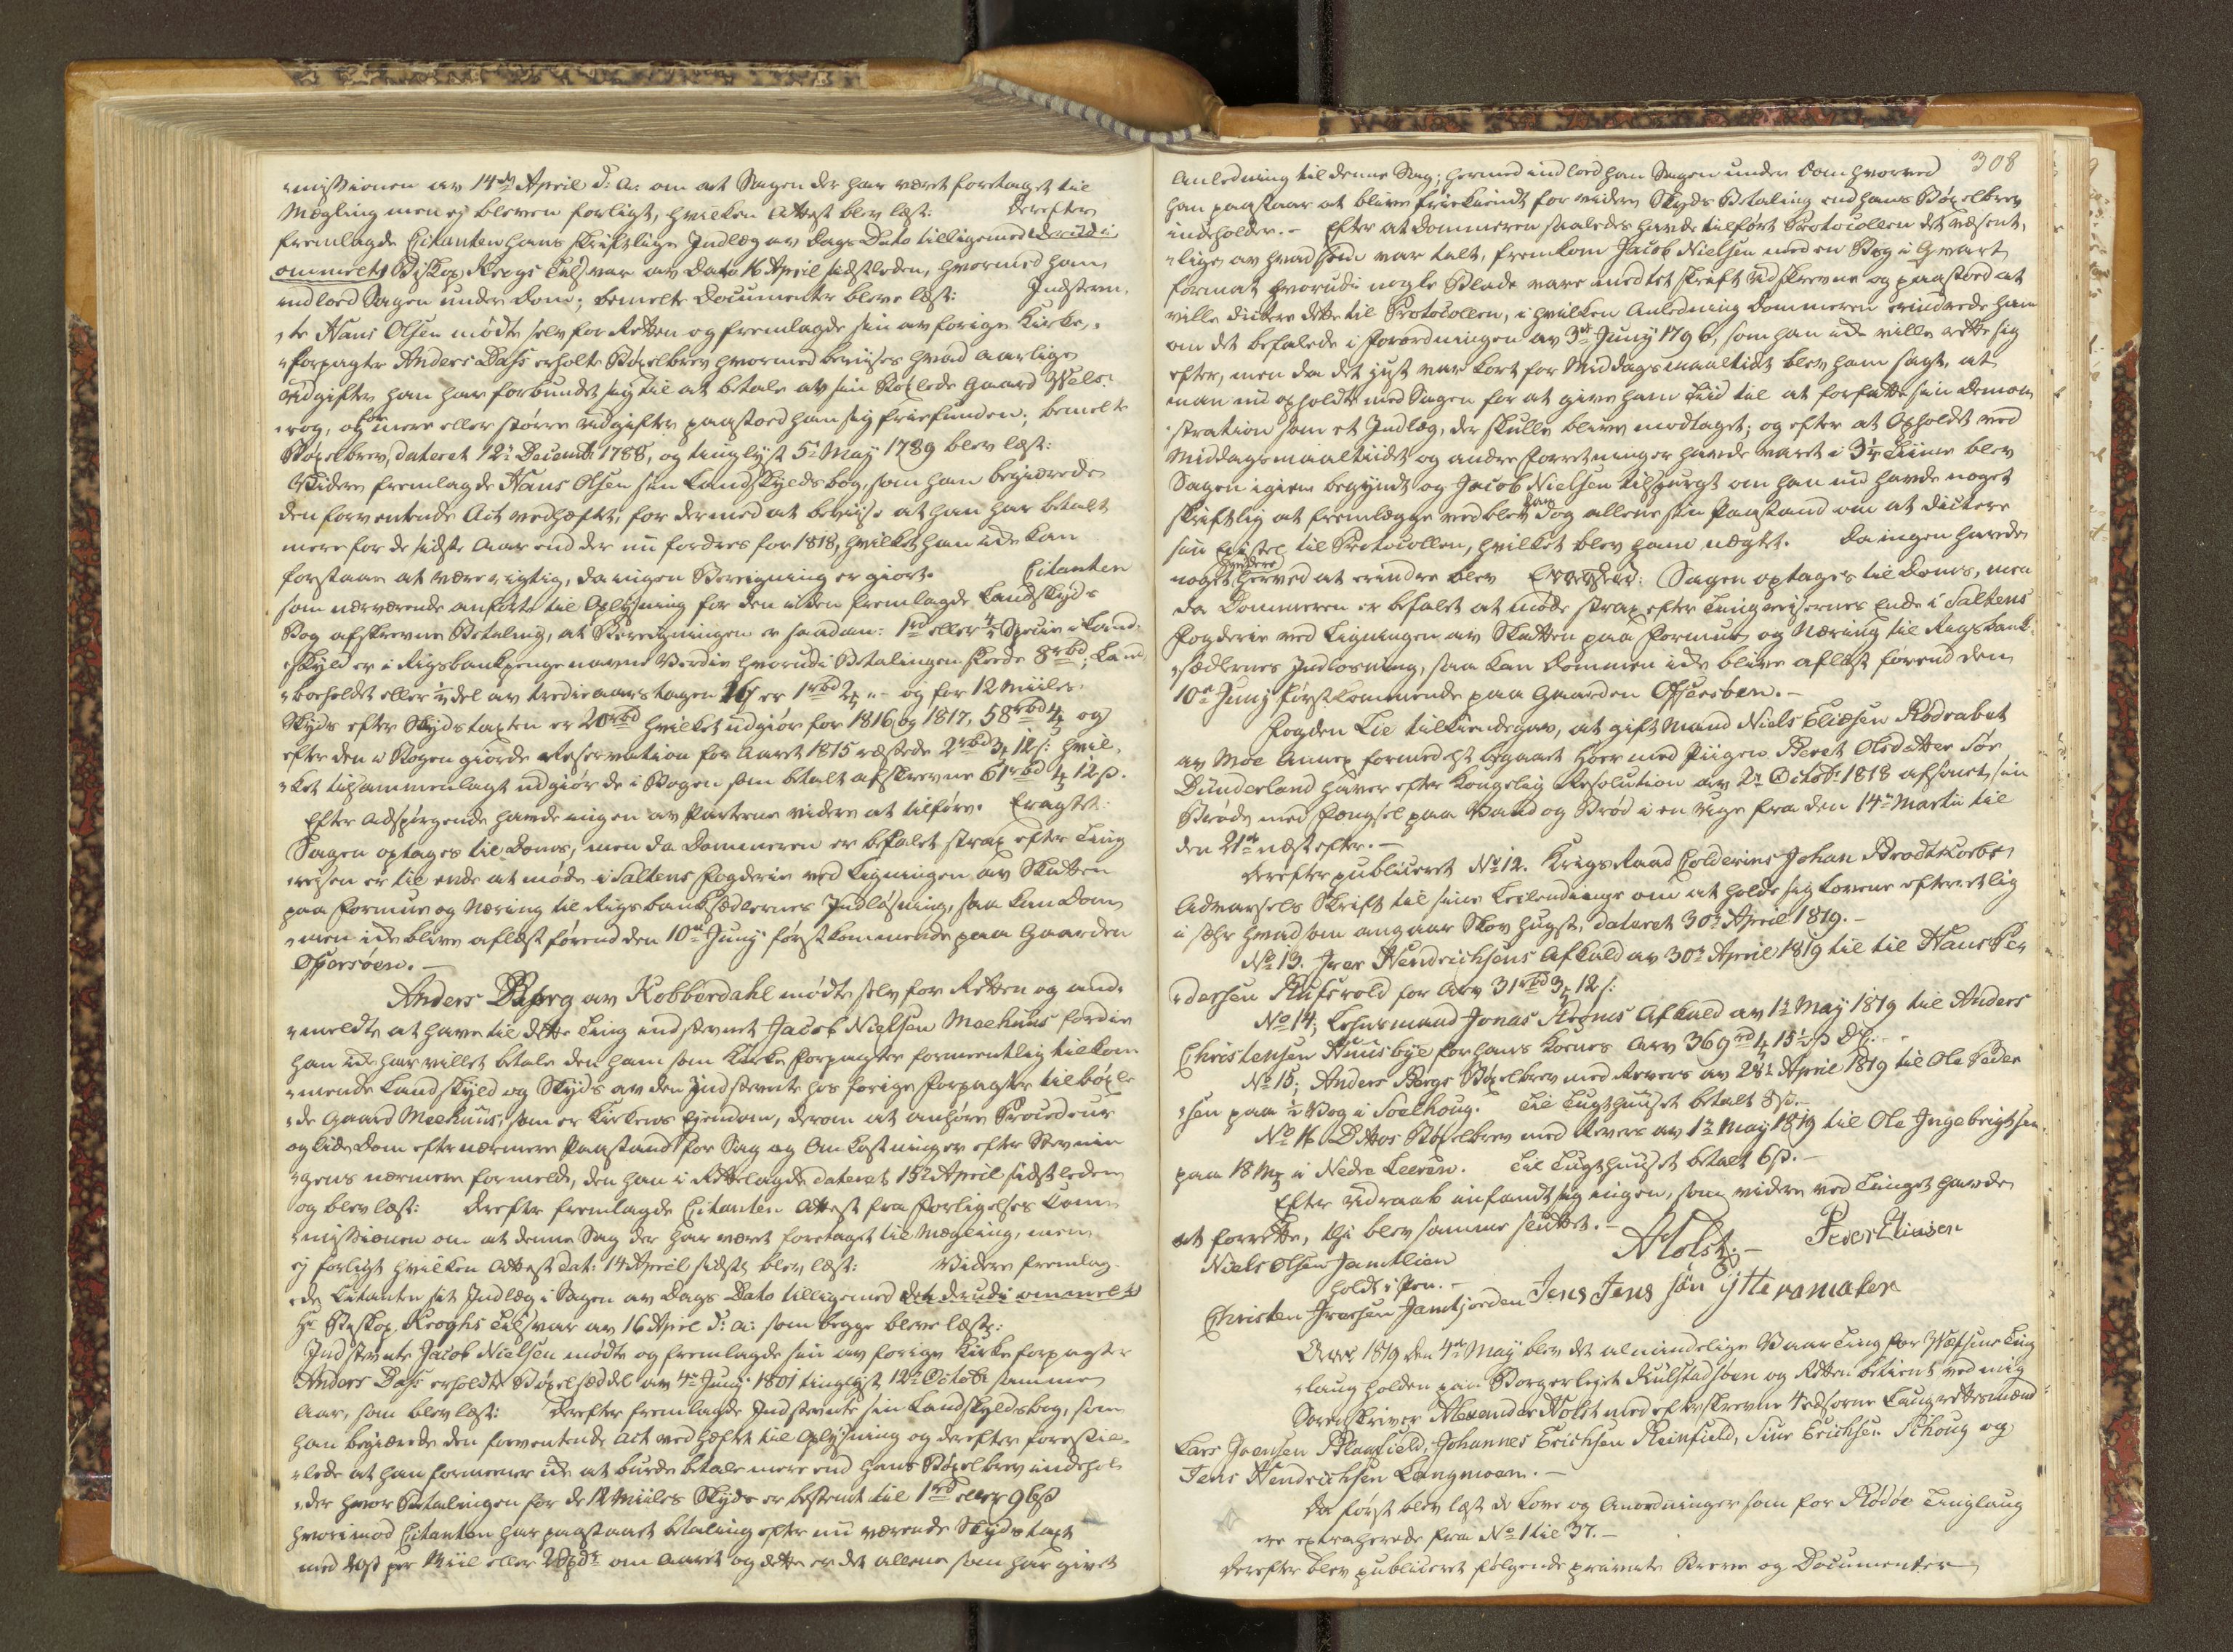 missionen av 14de April d: A: om at Sagen der har været foretaget til
Mægling men ej bleven forligt, hvilken Attest blev læst: Derefter
fremlagde Citanten hans skriftlige Indlæg av Dags Dato tilligemed det deri
ommeldte Biskop Krogs Tilsvar av Dato 16 April sidstleden, hvormed han
indlod Sagen under Dom; bemelte Documenter bleve læst: Indstevn-
te Hans Olsen mødte selv for Retten og fremlagde sin av forige Kirke,
forpagter Anders Dass erholte Bøxelbrev hvormed beviises hvad aarlige
Udgifter han har forbundet sig til at betale av sin Gaard
og for mere eller større Udgifter paastoed han sig friefunden; bemelte
Bøxelbrev, dateret 12te Decembr 1788, og tinglyst 5te May 1789 blev læst:
Videre fremlagde Hans Olsen sin Landskyldsbog, som han begiærede
den forventende Act vedhæftet, for dermed at beviise at han har betalt
mere for de sidste Aar end der nu fordres for 1818, hvilket han icke kan
forstaae at være rigtig, da ingen Beregning er giort. Citanten
som nærværende anførte til Oplysning for den i den fremlagde Landskylds
Bog afskrevne Betaling, at Beregningen er saadan: 1rd eller 4/5 Specie i Land-
skyld er i Rigsbankpenge navne Verdie hvorudi Betalingen skede 8rbd, Land
boeholdet eller 1/3 del av tredieaarstagen er 1rbd 2 " - og for 12 Miiles
Skyds efter Skydstaxten er 20rbd hvilket udgiør for 1816 og 1817, 58rbd 4 og
efter den i Bogen giorde Reservation for Aaret 1815 restede 2rbd 3 12s: hvil-
ket tilsammenlagt udgiør de i Bogen som betalt afskrevne 61rbd 4 12s.
Efter Adspørgende havde ingen av Parterne videre at tilføre. Eragtet:
Sagen optages til Doms, men da Dommeren er befalet strax efter Ting
reisen er til ende at møde i Saltens Fogderie ved Ligningen av Skatten
paa Formue og Næring til Rigsbanksedlernes Indløsning, saa kan Dom
men icke blive aflæst førend den 10de Juny førstkommende paa Gaarden
Offersøen. -
Anders Bierg av Kobberdahl mødte selv for Retten og an-
meldte at have til dette Ting indstevnet Jacob Nielsen Moehuus fordie
han icke har villet betale den ham som Kirke Forpagter formeentlig tilkom
mende Landskyld og Skyds av den Indstevnte hos forige Forpagter tilbøxle
de Gaard Moehuus, som er Kirkens Eiendom, derom at anhøre Procedeur
og lide Dom efter nærmere Paastand for Sag og Omkostninger efter Stevnin
gens nærmere formeld, den han i Rettelagde dateret 15de April sidstleden
og blev læst: Derefter fremlagde Citanten Attest fra Forligelses Com
missionen om at denne Sag der har været foretaget til Mægling, men
ej forligt hvilken Attest dat: 14 April sidste blev læst: Videre fremlag
de Citanten sit Indlæg i Sagen av Dags Dato tilligemed det derudi ommelte
Hr Biskop Kroghs Tilsvar av 16 April d: a: som begge bleve læste:
Indstevnte Jacob Nielsen mødte og fremlagde sin av forige Kirkeforpagter
Anders Dass erholdte Bøxelseddel av 4de Juny 1801 tinglyst 12te Octobr samme
Aar, som blev læst: Derefter fremlagde Indstevnte sin Landskyldsbog, som
han begiærede den forventende Act vedhæftet til Oplysning og derefter forestil-
lede at han formener icke at burde betale mere end hans Bøxelbrev indehol
der hvor Betalingen for de 12 Miiles Skyds er bestemt til 1rd eller 96s
hvorimod Citanten har paastaaet betaling efter nu værende Skydstaxt
med per Miil eller om Aaret og dette er det allene som har givet
308
Anledning til denne Sag; hermed indlod han Sagen under Dom hvorved
han paastaar at blive friekiendt for videre Skyds Betaling end hans Bøxelbrev
indeholder. - Efter at Dommeren saaledes havde tilført Protocollen det væsent-
lige av hvad som var talt, fremkom Jacob Nielsen med en Bog i Qvart
format hvorudi nogle Blade vare med tet Skrift udskrevne og paastoed at
ville dictere dette til Protocollen, i hvilken Anledning Dommeren erindrede ham
om det befalede i Forordningen av 3de Juny 1796, som han icke ville rette sig
efter, men da det just var kort for Middagsmaaltidet blev ham sagt, at
man nu opholdt med Sagen for at give ham Tiid til at forfatte sin Demon
stration som et Indlæg, der skulle blive modtaget; og efter at Opholdt ved
Middagsmaaltidet og andre Forretninger havde varet i 3 1/2 Tiime blev
Sagen igien begyndt og Jacob Nielsen tilspurgt om han nu havde noget
skriftlig at fremlægge vedblev han dog allene sin Paastand om at dictere
sin Epistel til Protocollen, hvilket blev ham nægtet. Da ingen havde
noget videre herved at erindre blev Eragtet: Sagen optages til Doms, men
da Dommeren er befalet at møde strax efter Tingreisernes Ende i Saltens
Fogderie ved Ligningen av Skatten paa Formue og Næring til Rigsbank-
sedlernes Indløsning, saa kan Dommen icke blive aflæst førend den
10de Juny førstkommende paa Gaarden Offersøen. -
Fogden Lie tilkiendegav, at gift Mand Niels Eliæsen Rødvabet
av Moe Annex formedelst begaaet Hoer med Piigen Beret Olsdatter Sør
Dunderland haver efter Kongelig Resolution av 2de Octobr 1818 afsonet sin
Brøde med Fængsel paa Vand og Brød i en Uge fra den 14de Martii til
den 21de næstefter. -
Derefter publiceret No 12. KrigsRaad Coldevins Johan Brodtkorbs
Advarsels Skrift til sine Leilendinge om at holde sig Lovene efterretlig
i sær hvad som angaar Skov hugst, dateret 30te April 1819. -
No 13. Iver Hendrichsens Afkald av 30te April 1819 til til Hans Pe
dersen Rufsvold for Arv 31rbd 3 12s:
No 14; Lehnsmand Jonas Afkald av 1te May 1819 til Anders
Christensen Huusbye for hans Kones Arv 369rd 4 15 1/2 s
No 15; Anders Bergs Bøxelbrev med Revers av 28de April 1819 til Ole Peder
sen paa 1/2 Vog i Soelhoug. Til Tugthuuset betalt 8s. -
No 16 Dittos Bøxelbrev med Revers av 1te May 1819 til Ole Ingebrigtsen
paa 18 Mk i Nedre Leeren. Til Tugthuuset betalt 6s. -
Efter Udraab infandt sig ingen, som videre ved Tinget havde
at forrette, thi blev samme sluttet. -
AHolst. - Peder Eliasen
Niels Olsen Jamtlien
holdt i Pen. -
Christen Iversen Jamtjorden Jens Jens søn ytteramaker
Aar 1819 den 4de May blev det almindelige Vaar Ting for Nesne Ting
laug holden paa Borgerleiet Kulstadsøen og Retten betient ved mig
Sorenskriver Alexander Holst med efterskrevne 4 edsorne Laugrettesmænd
Lars Joensen Blaafield, Johannes Erichsen Reinfield, Siur Erichsen Schoug og
Jens Hendrichsen Langmoen. -
Da først blev læst de Love og Anordninger som for Rødøe Tinglaug
ere extraherede fra No 1 til 37. -
Derefter blev publiceret følgende private Breve og Documenter